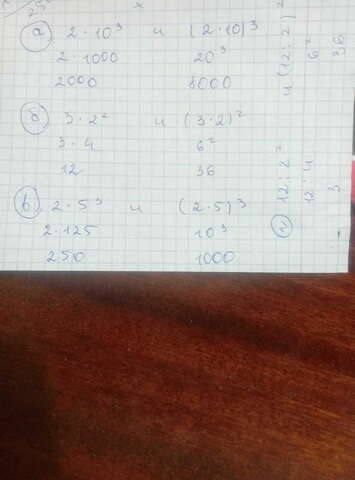 а) 2 · 10³ и (2 · 10)³
2 · 1000 20³
2000 8000
б) 3 · 2² и (3 · 2)²
3 · 4 6²
12 36
в) 2 · 5³ и (2 · 5)³
2 · 125 10³
250 1000
г) 12 : 2² и (12 : 2)²
12 : 4 6²
3 36